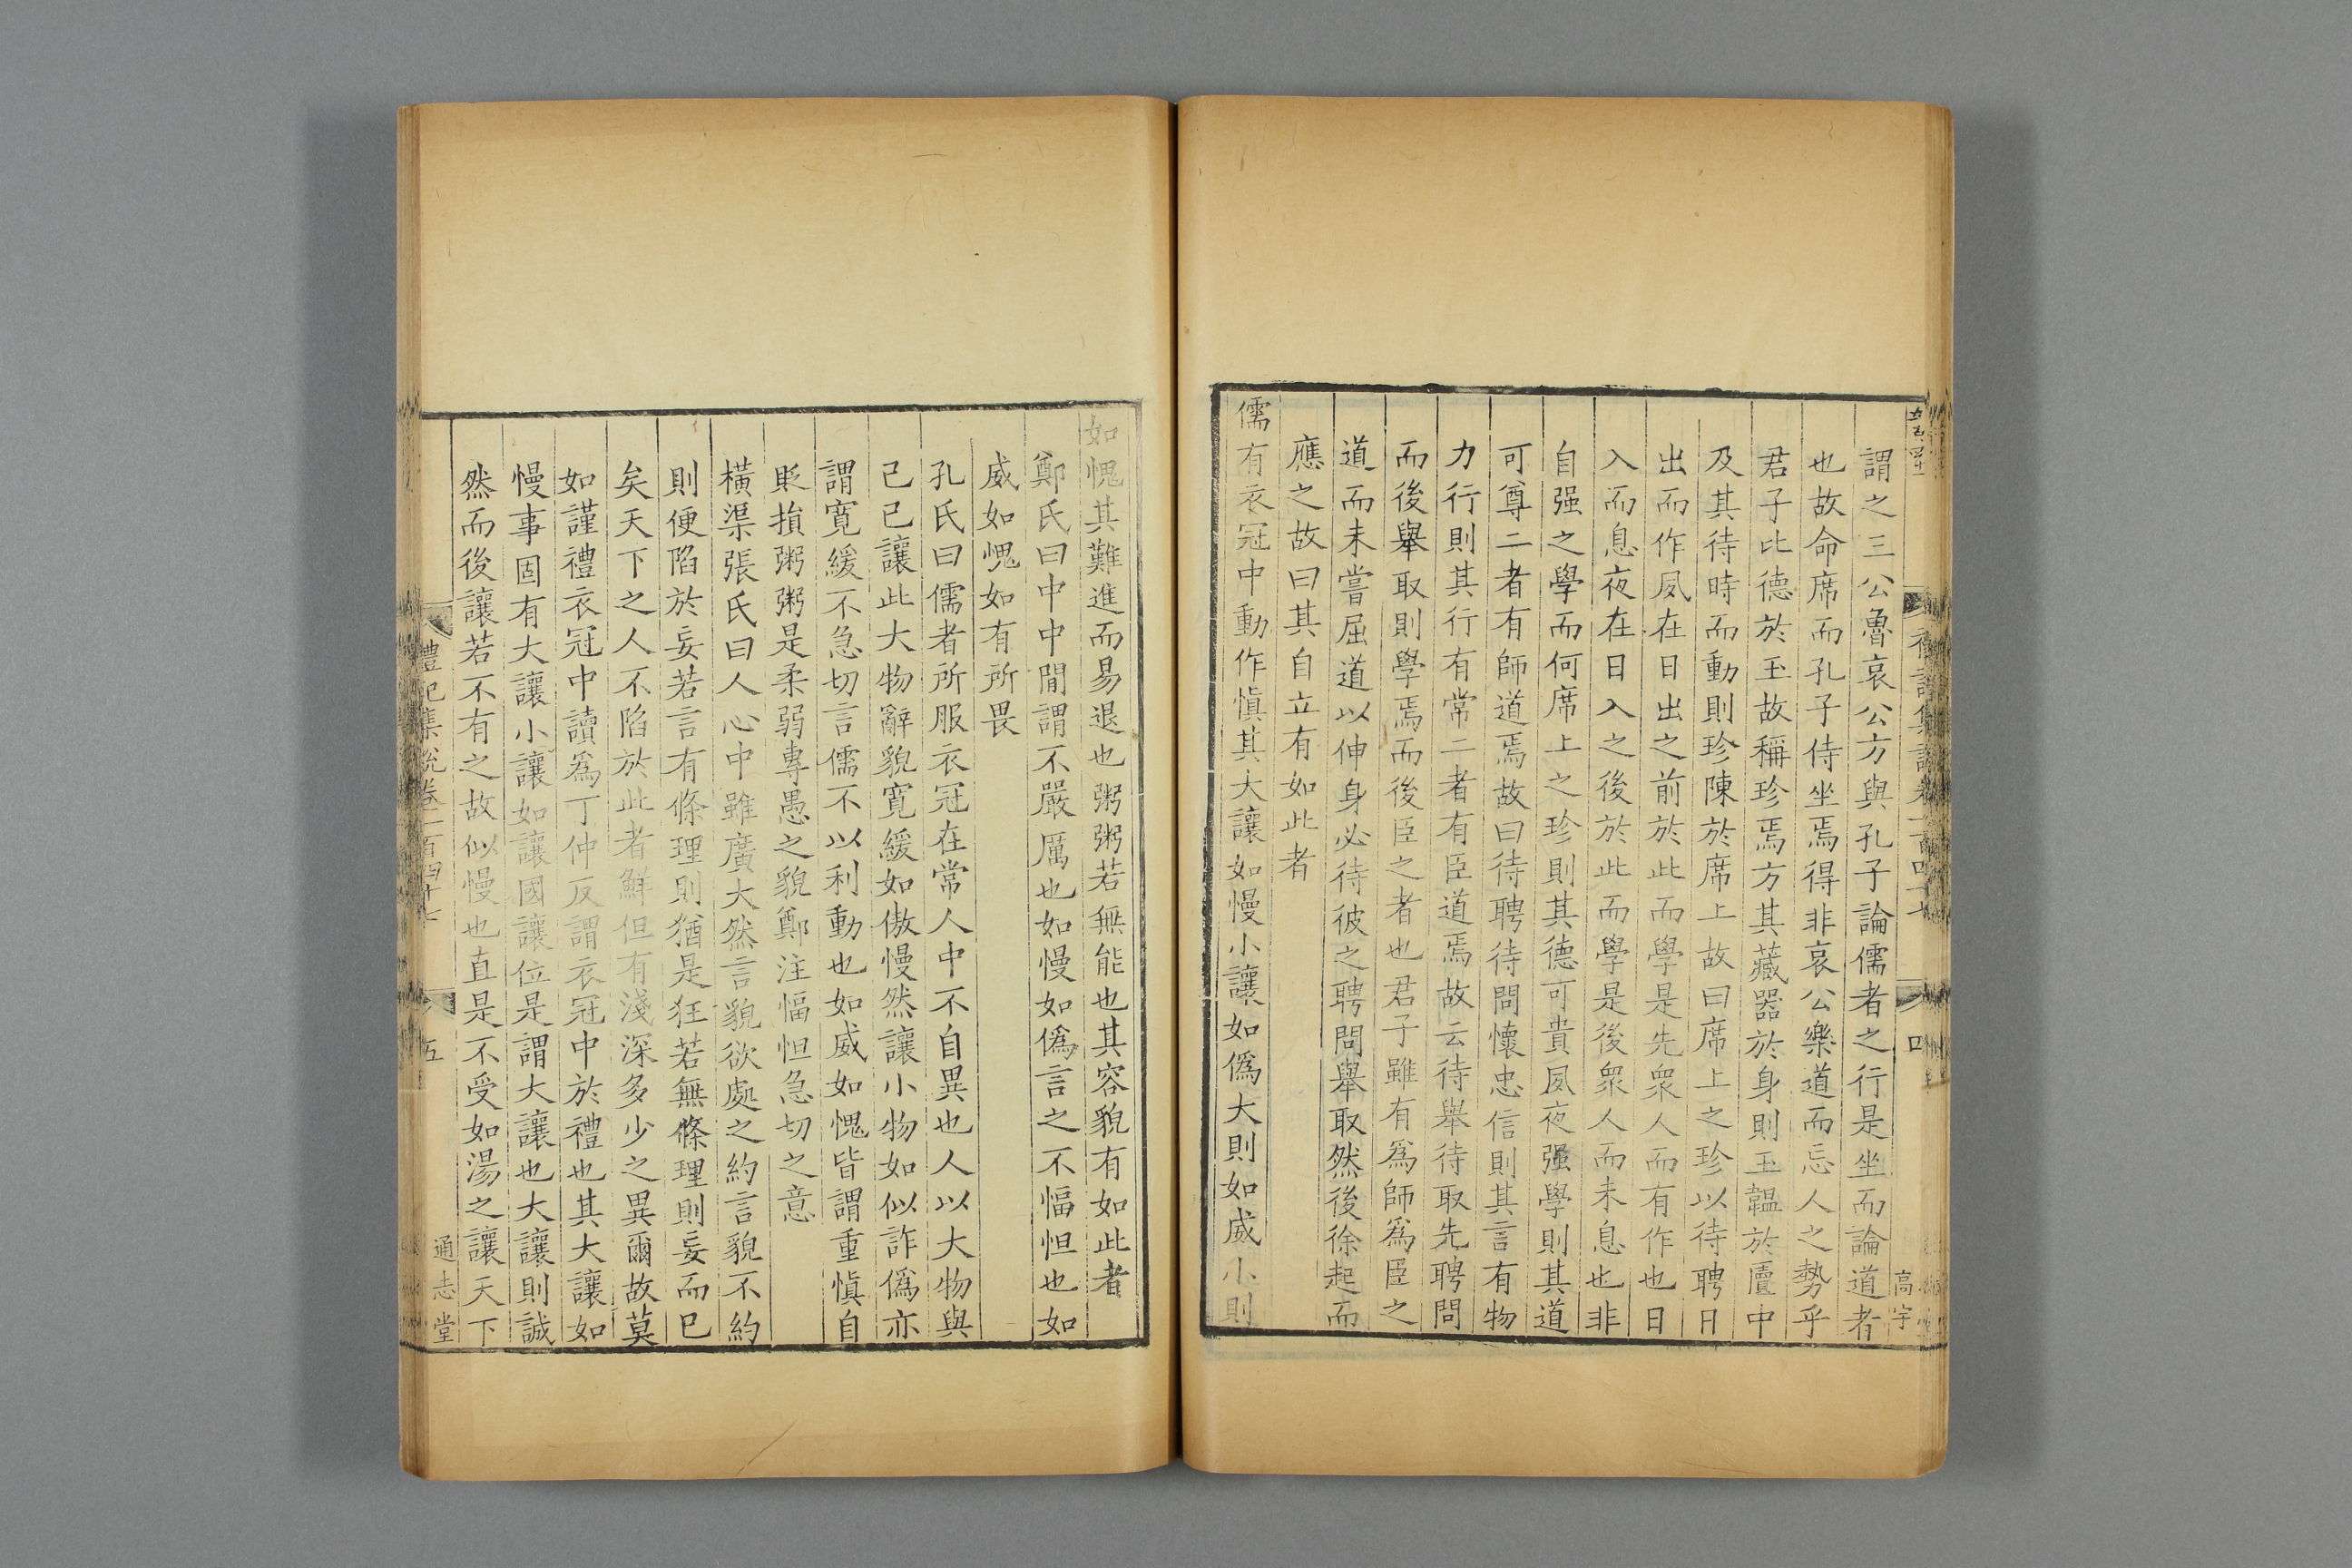 謂之三公魯哀公方與孔子論儒者之行是坐而論道者
也故命席而孔子侍坐焉得非哀公樂道而忘人之勢乎
君子比德於玉故稱珍焉方其藏器於身則玉韞於匵中
及其待時而動則珍陳於席上故曰席上之珍以待聘日
出而作夙在日出之前於此而學是先衆人而有作也日
入而息夜在日入之後於此而學是後衆人而未息也非
自强之學而何席上之珍則其德可貴夙夜强學則其道
可尊二者有師道焉故曰待聘待問懷忠信則其言有物
力行則其行有常二者有臣道焉故云待舉待取先聘問
而後舉取則學焉而後臣之者也君子雖有爲師爲臣之
道而未嘗屈道以伸身必待彼之聘問舉取然後徐起而
應之故曰其自立有如此者
儒有衣冠中動作愼其大讓如慢小讓如僞大則如威小則
四
高宇
如愧其難進而易退也粥粥若無能也其容貌有如此者
鄭氏曰中中閒謂不嚴厲也如慢如僞言之不愊怛也如
威如愧如有所畏
孔氏曰儒者所服衣冠在常人中不自異也人以大物與
己己讓此大物辭貌寛緩如傲慢然讓小物如似詐僞亦
謂寛緩不急切言儒不以利動也如威如愧皆謂重愼自
貶損粥粥是柔弱專愚之貌鄭注愊怛急切之意
橫渠張氏曰人心中雖廣大然言貌欲處之約言貌不約
則便陷於妄若言有條理則猶是狂若無條理則妄而已
矣天下之人不陷於此者鮮但有淺深多少之異爾故莫
如謹禮衣冠中讀爲丁仲反謂衣冠中於禮也其大讓如
慢事固有大讓小讓如讓國讓位是謂大讓也大讓則誠
然而後讓若不有之故似慢也直是不受如湯之讓天下
禮記集說卷一百四十七
五
通志堂